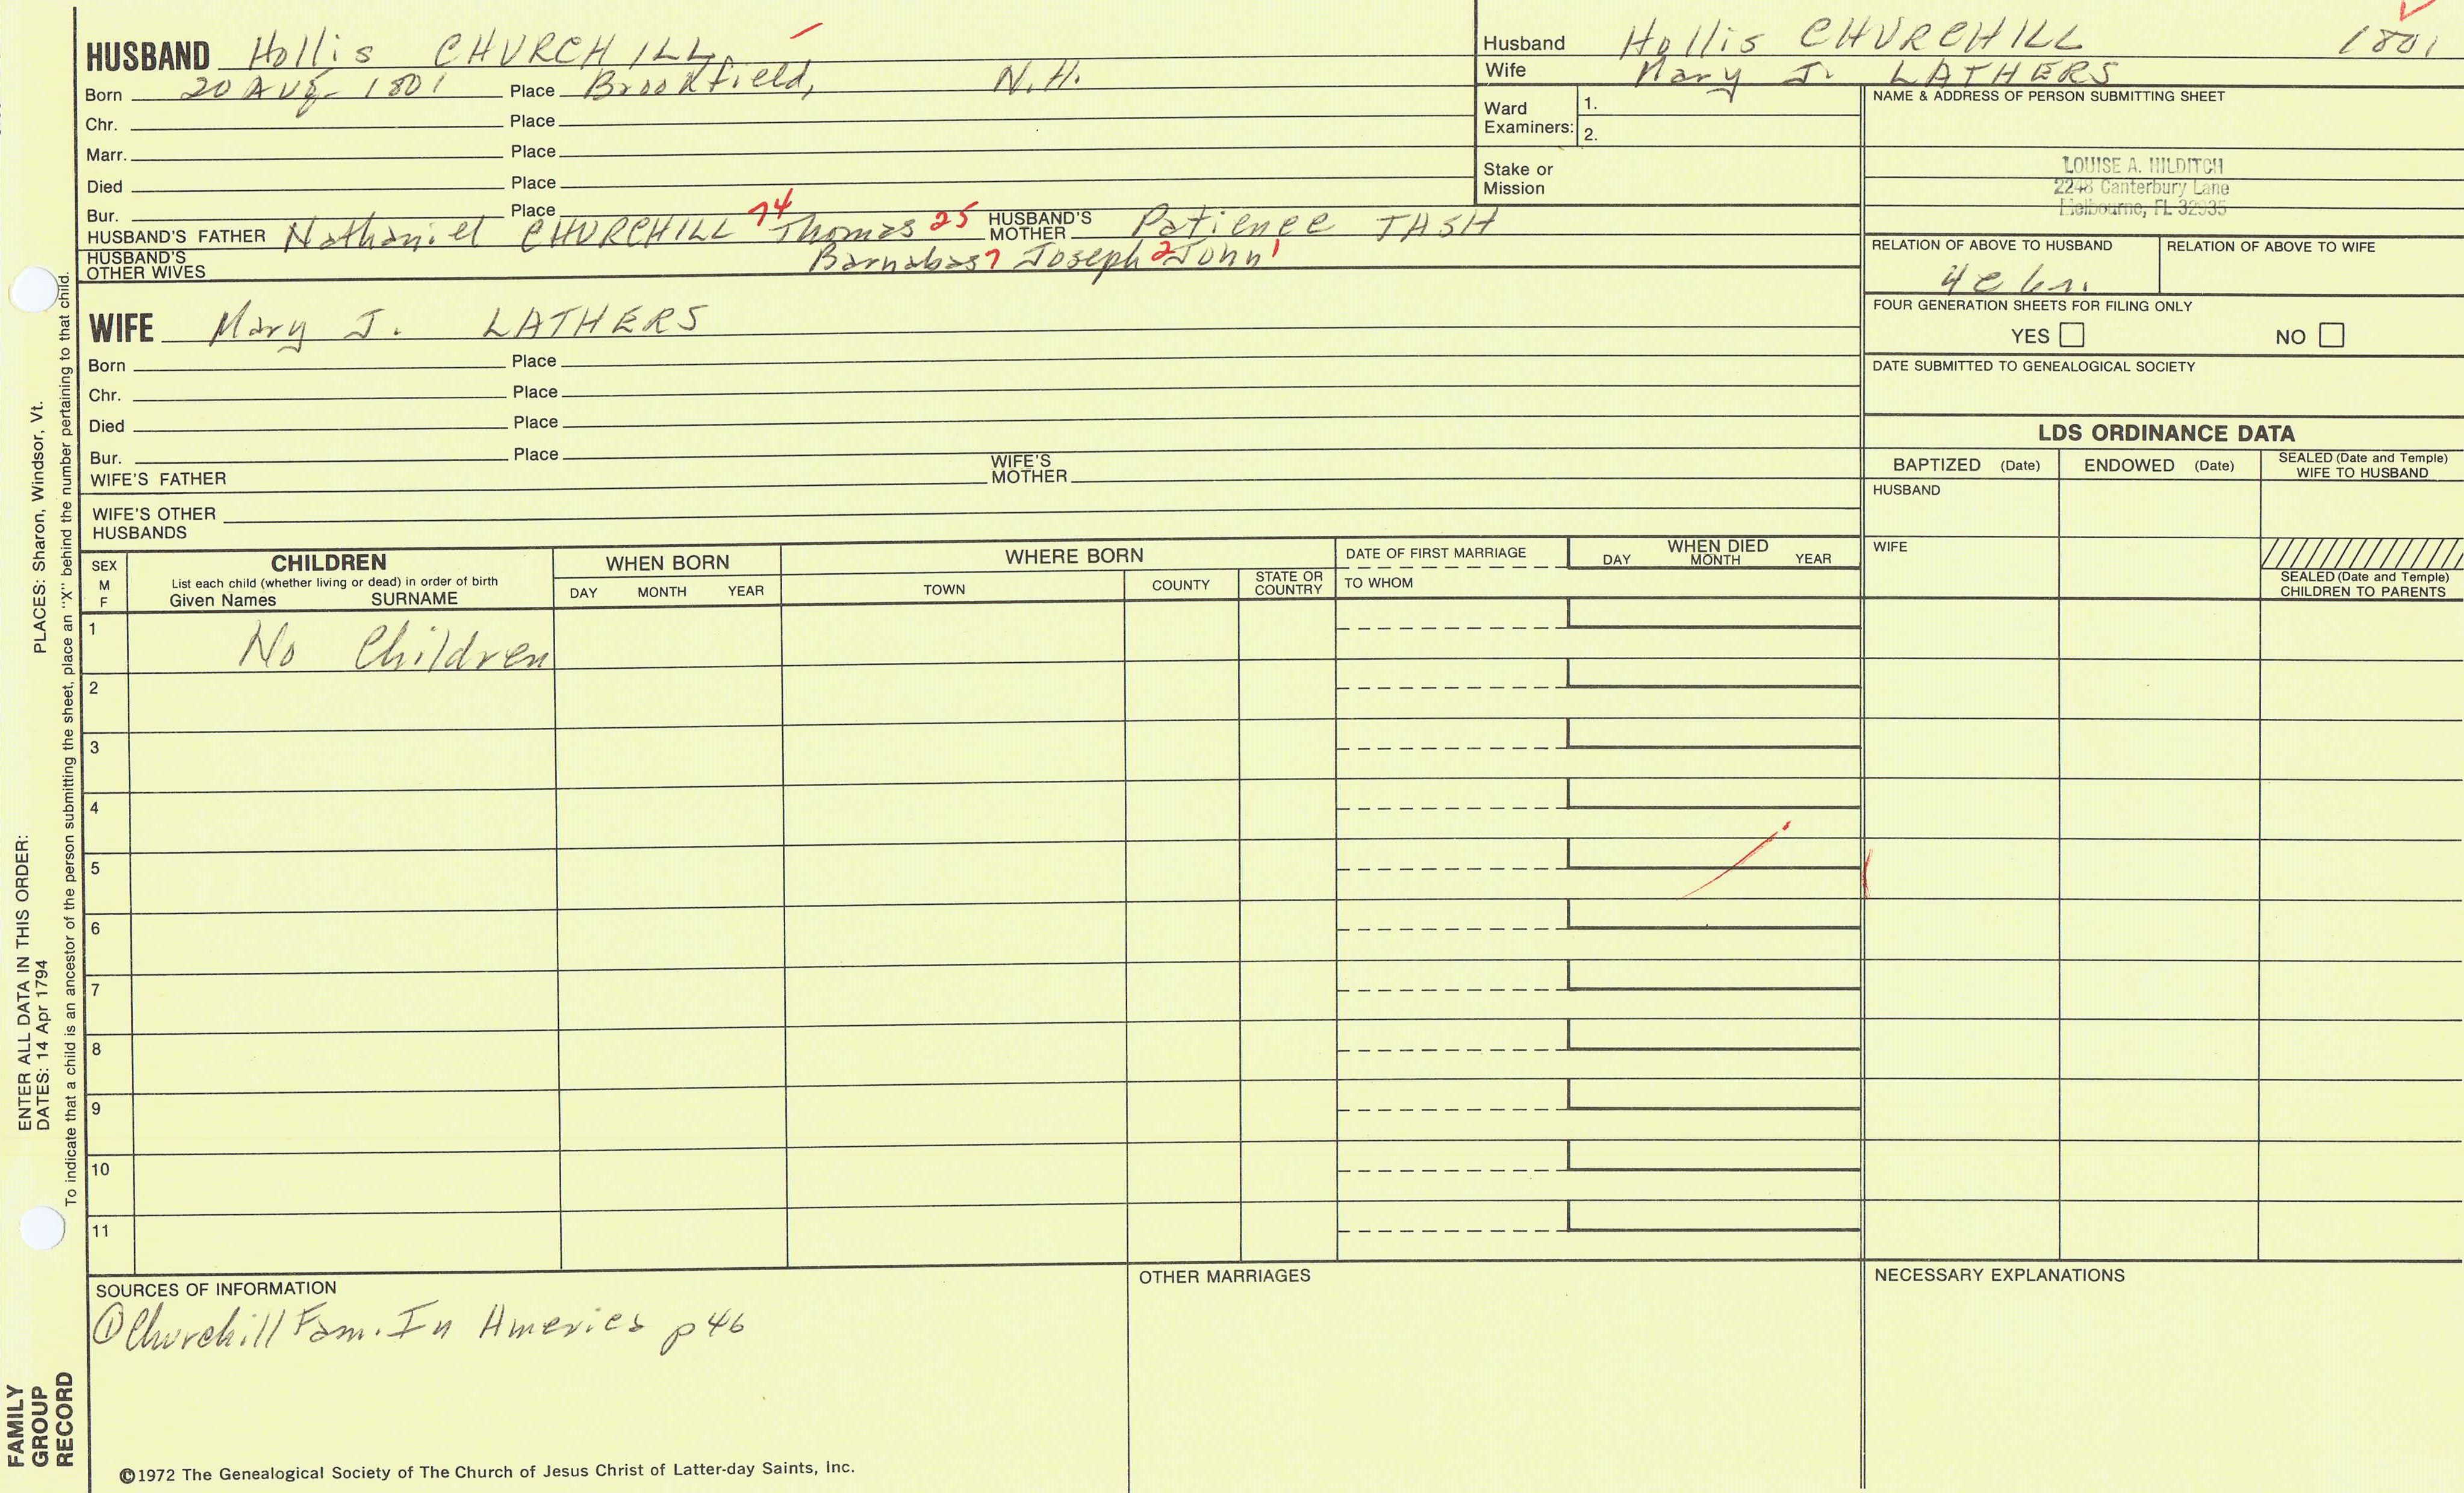 HUSBAND Hollis CHURCHILL
Born 20 AUG 1801 Place Brookfield, N.H.
Chr. Place
Marr. Place
Died Place
Bur. Place
HUSBAND'S FATHER Nathaniel CHURCHILL 74 Thomas 25 HUSBAND'S MOTHER Patience TASH
HUSBAND'S OTHER WIVES Barnabas 7 Joseph 2 John 1
WIFE Mary J. LATHERS
Born Place
Chr. Place
Died Place
Bur. Place
WIFE'S FATHER WIFE'S MOTHER
WIFE'S OTHER HUSBANDS
Husband Hollis CHURCHILL 1801
Wife Mary J. LATHERS
Ward Examiners: 1.
2.
Stake or Mission
NAME & ADDRESS OF PERSON SUBMITTING SHEET
LOUISE A. HILDITCH
2248 Canterbury Lane
Melbourne, FL 32935
RELATION OF ABOVE TO HUSBAND RELATION OF ABOVE TO WIFE
4c
FOUR GENERATION SHEETS FOR FILING ONLY
YES NO
DATE SUBMITTED TO GENEALOGICAL SOCIETY
LDS ORDINANCE DATA
BAPTIZED (Date) ENDOWED (Date) SEALED (Date and Temple) WIFE TO HUSBAND
HUSBAND
WIFE
SEALED (Date and Temple) CHILDREN TO PARENTS
SEX M F
CHILDREN
List each child (whether living or dead) in order of birth
Given Names SURNAME
WHEN BORN
DAY MONTH YEAR
WHERE BORN
TOWN COUNTY STATE OR COUNTRY
DATE OF FIRST MARRIAGE
TO WHOM
WHEN DIED
DAY MONTH YEAR
1 No Children
2
3
4
5
6
7
8
9
10
11
SOURCES OF INFORMATION
① Churchill Fam. In America p 46
OTHER MARRIAGES
NECESSARY EXPLANATIONS
©1972 The Genealogical Society of The Church of Jesus Christ of Latter-day Saints, Inc.
FAMILY GROUP RECORD
ENTER ALL DATA IN THIS ORDER:
DATES: 14 Apr 1794 PLACES: Sharon, Windsor, Vt.
To indicate that a child is an ancestor of the person submitting the sheet, place an "X" behind the number pertaining to that child.